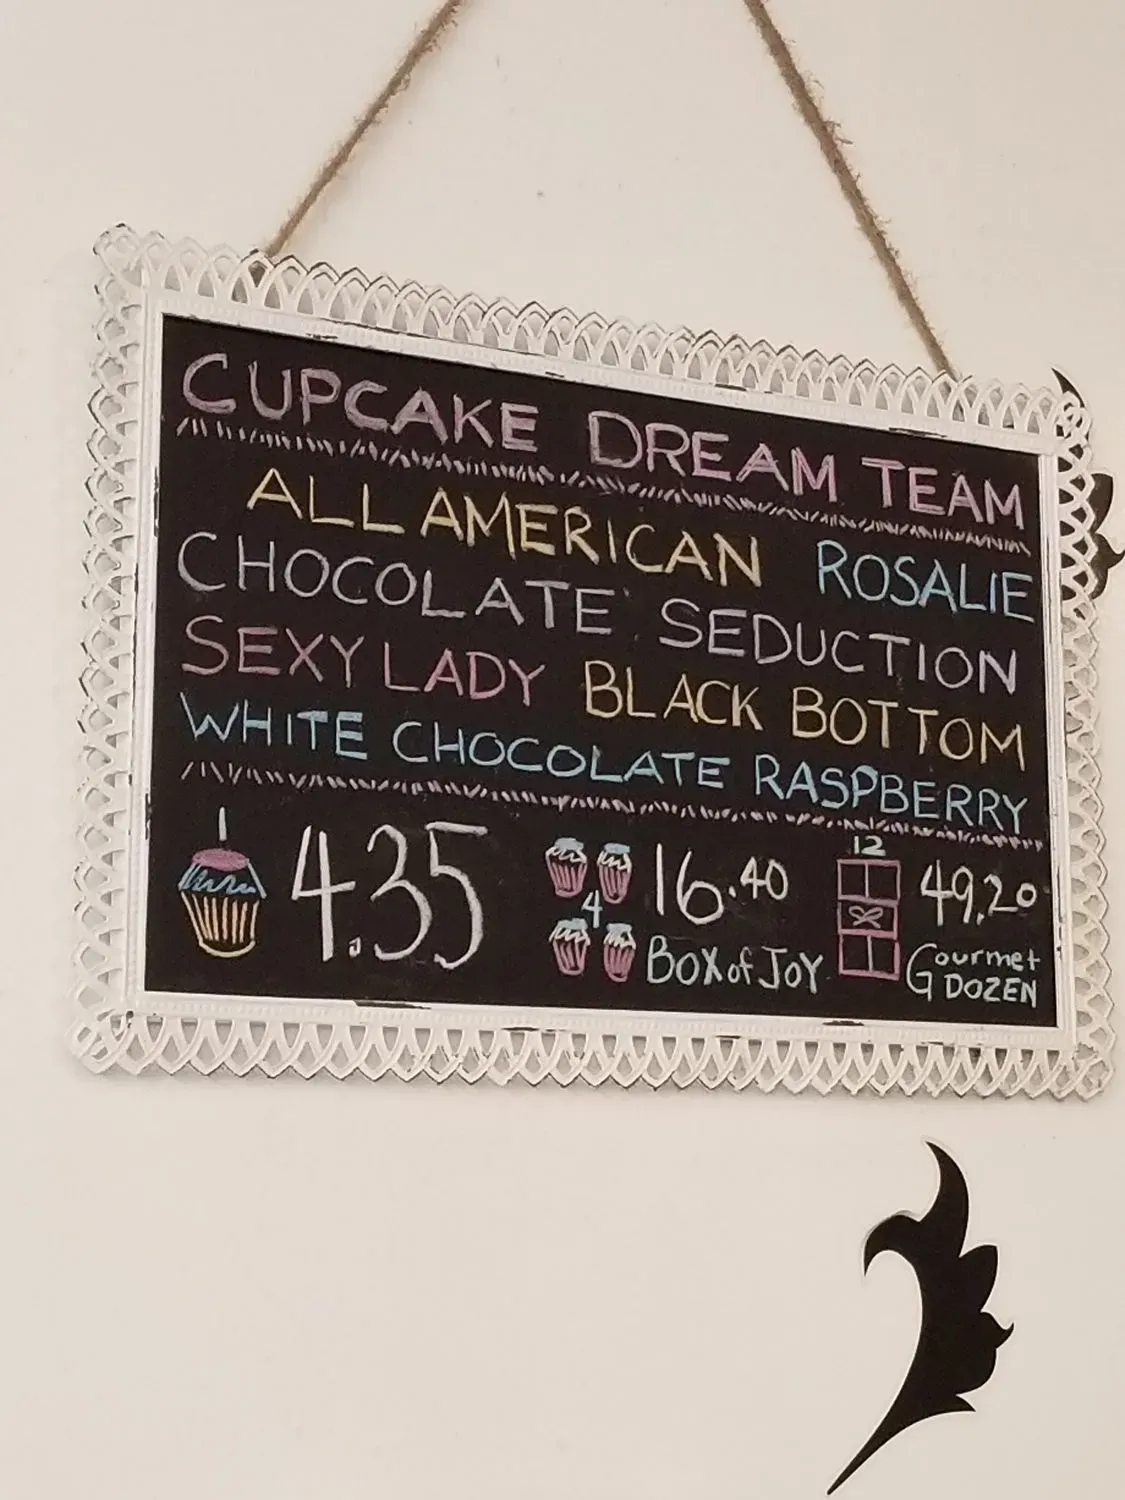 CUPCAKE DREAM TEAM
ALL AMERICAN ROSALIE
CHOCOLATE SEDUCTION
SEXY LADY BLACK BOTTOM
WHITE CHOCOLATE RASPBERRY
1 4.35
4 16.40
BOX of JOY
12 49.20
Gourmet
DOZEN